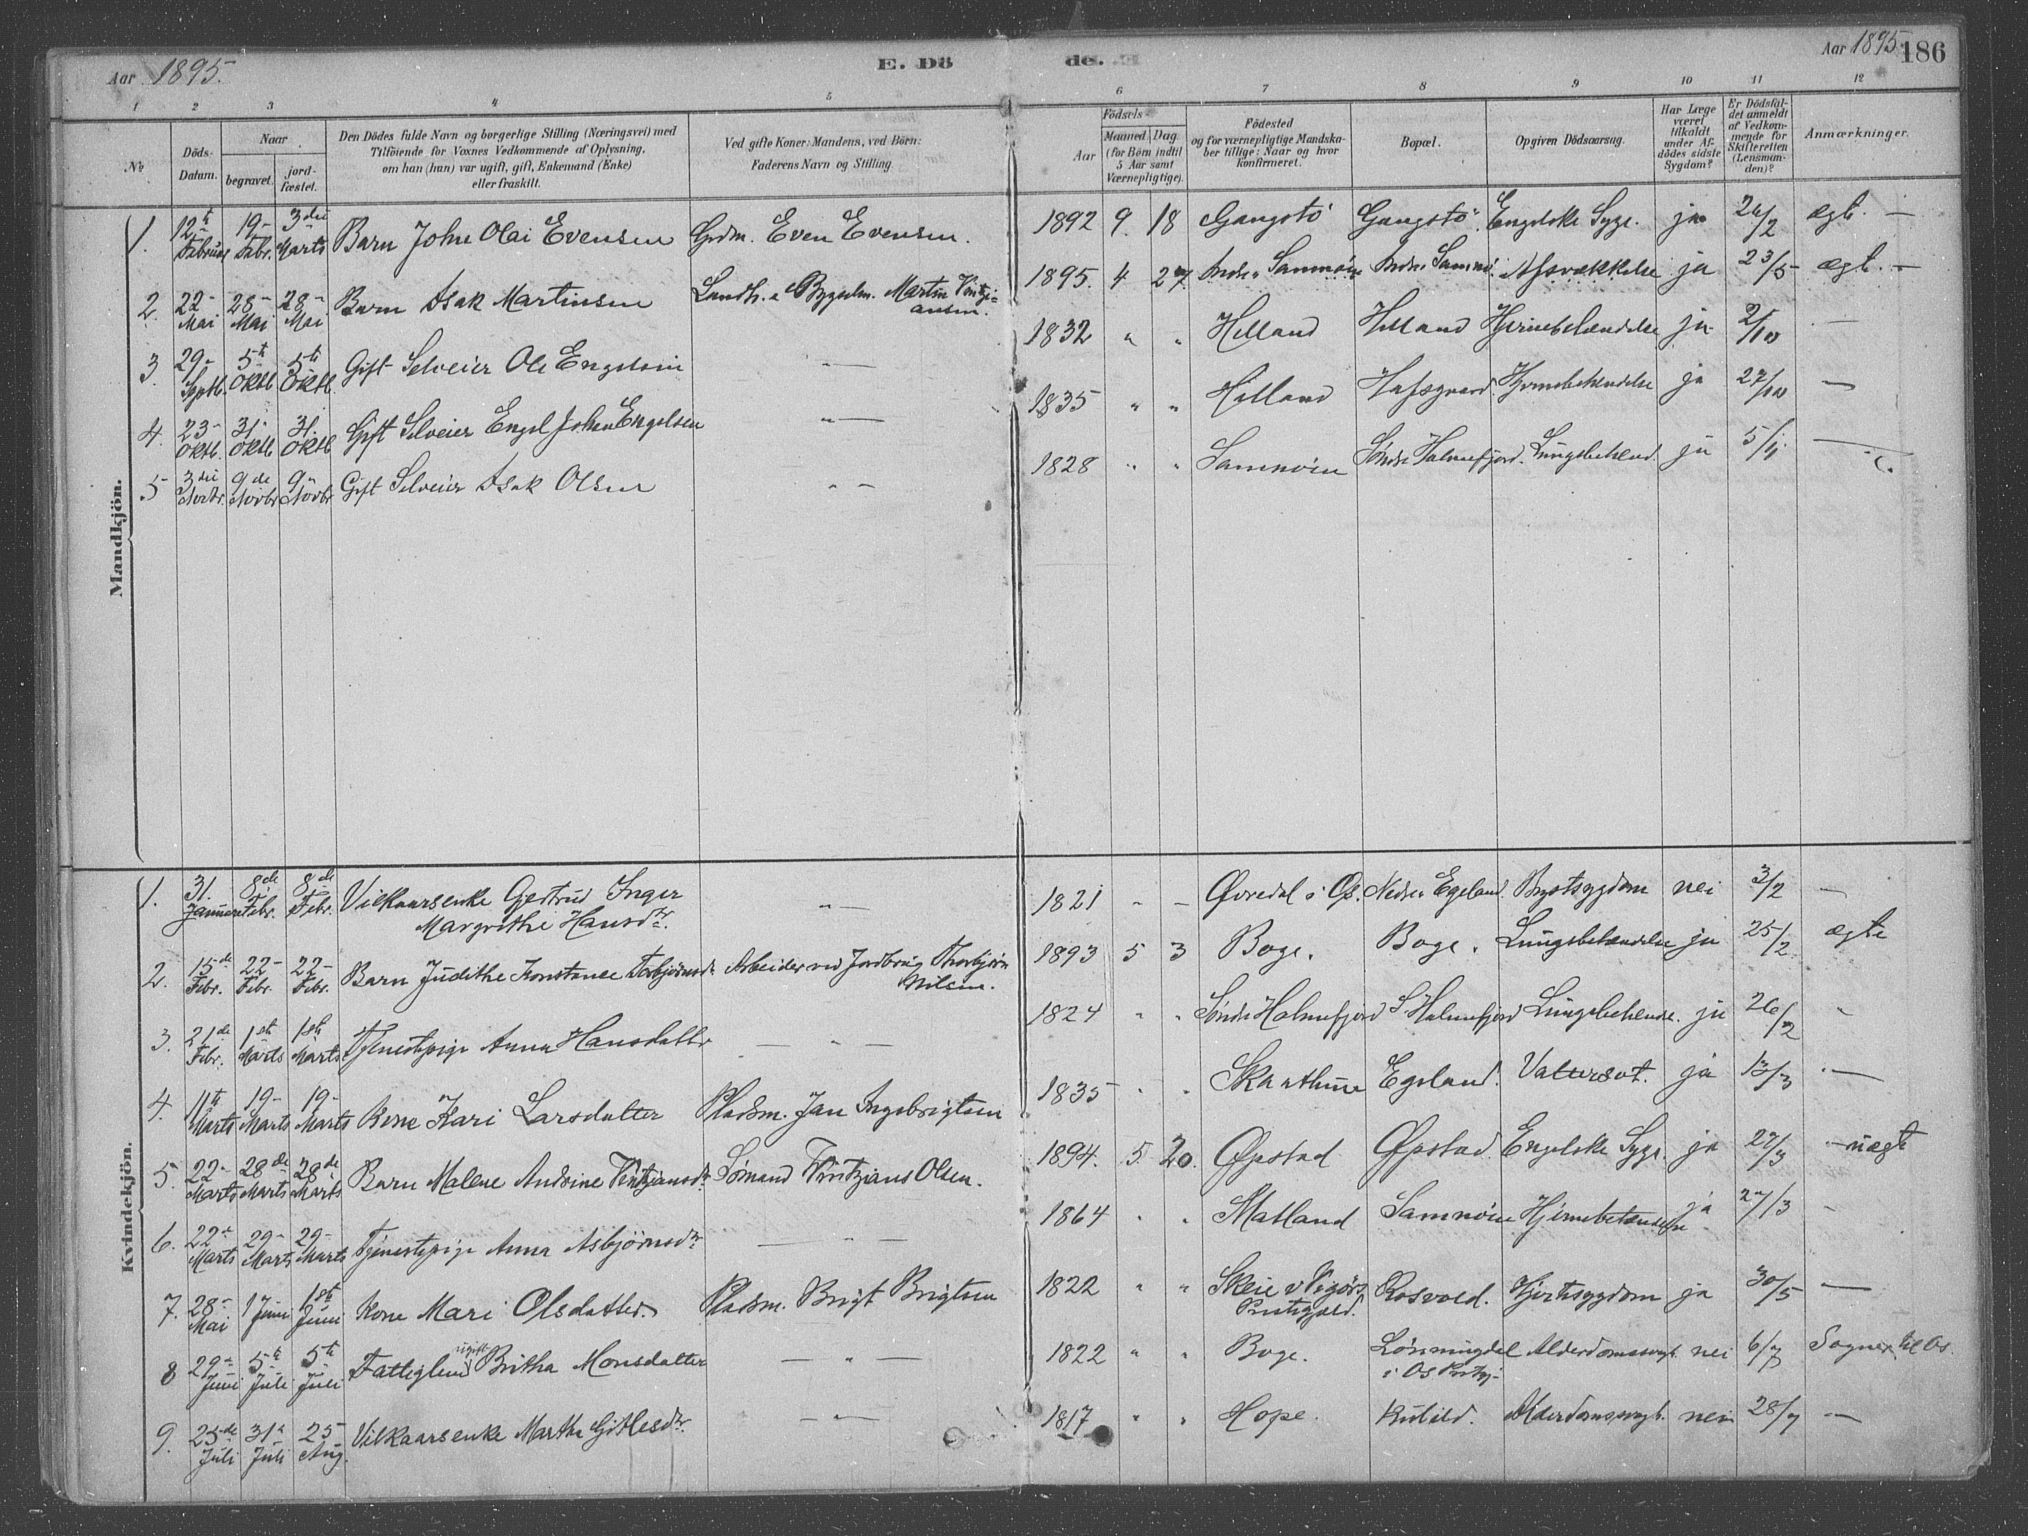 Aar 1895.
E. Dö
de.
Aar 1895.
186
1 2 3 4 5 6 7 8 9 10 11 12
№
Döds-Datum.
Naar
begravet.
jord-fæstet.
Den Dödes fulde Navn og borgerlige Stilling (Næringsvei) med
Tilföiende for Voxnes Vedkommende af Oplysning,
om han (hun) var ugift, gift, Enkemand (Enke)
eller fraskilt.
Ved gifte Koner: Mandens, ved Börn:
Faderens Navn og Stilling
Födsels
Aar
Maaned
Dag
(for Börn indtil
5 Aar samt
Værnepligtige).
Födested
og for værnepligtige Mandska-
ber tillige: Naar og hvor
konfirmeret.
Bopæl.
Opgiven Dödsaarsag.
Har Læge
været
tilkaldt
under Af-
dödes sidste
Sygdom?
Er Dödsfal-
det anmeldt
af Vedkom-
mende for
Skifteretten
(Lensman-
den)?
Anmærkninger.
Mandkjön.
1. 12te Februar 19- Febr. 3die Marts Barn John Olai Evensen Grdm. Even Evensen. 1892 9. 18 Gangstø Gangstø. Engelske Syge. ja 26/2 ægt. —
2. 22- Mai 28- Mai 28- Mai Barn Isak Martinsen Landh. Bygselm. Martin 1895. 4 27 Indre Samnøen Indre Samnø Afsvækkelse ja 23/5 ægt. —
3. 29- Septb. 5te Oktb. 5te Oktb. Gift Selveier Ole Engelsen — 1832 " " Helland Helland Hjernebetændelse ja 2/10 —
4. 23- Oktb. 31. Oktb. 31. Oktb. Gift Selveier Engel Johan Engelsen — 1835 " " Helland Hafsgaard Hjernebetændelse ja 27/10 —
5 3die Novbr. 9de Novbr. 9- Novbr. Gift Selveier Isak Olsen " " 1828 " " Samnøien Søndre Holmefjord. Lungebetænd. ja 5/11 —
Kvindekjön.
1. 31. Januar 8de Febr. 8de Febr. Vilkaarsenke Gjertrud Inger
Margrethe Hansdtr. — 1821 " — Øvredal i Os. Nedre Egeland. Brystsygdom nei 3/2 —
2. 15de Febr. 22- Febr. 22- Febr. Barn Judithe Konstanse Torbjørnsdr. Arbeider ved Jordbrug Thorbjørn
Nilsen. 1893 5 3 Boge. Boge. Lungebetændelse ja 25/2 ægte
3. 21de Febr. 1ste Marts 1ste Marts Tjenestepige Anna Hansdatter — " — 1824 " " Søndre Holmefjord S. Holmefjord Lungebetænde. ja 26/2 "
4. 11te Marts 19- Marts 19- Marts Kone Kari Larsdatter Pladsm. Jan Ingebrigtsen 1835 " " Skarthune Egeland. Vatersot. ja 13/3 —
5. 22- Marts 28de Marts 28de Marts Barn Malene Andrine Fintzjansdr. Sømand Fintzjans Olsen. 1894. 5. 20. Øpstad Øpstad. Engelske Syge ja 27/3 — uægt
6. 22- Marts 29- Marts 29- Marts Tjenestepige Anna Asbjørnsdtr — " — 1864 " " Matland Samnøien Hjernebetændelse ja 27/3 —
7. 28- Mai 1 Juni 1ste Juni Kone Mari Olsdatter Pladsm. Brigt Brigtsen 1822 " " Skeie v Vigørs
Prestegjæld. Rosvold. Hjertesygdom ja 30/5 —
8 29- Juni 5te Juli 5te Juli Fattiglem ugift Britha Monsdatter — " — 1822 " " Boge. Lønningdal
i Os Prstgj- Alderdomssvagh. nei 6/7 Sogner til Os.
9. 25de Juli 31- Juli 25 Aug. Vilkaarsenke Martha Gitlesdtr. — " — 1817 " " Hope. Kulild. Alderdomssvagh. nei 28/7 —